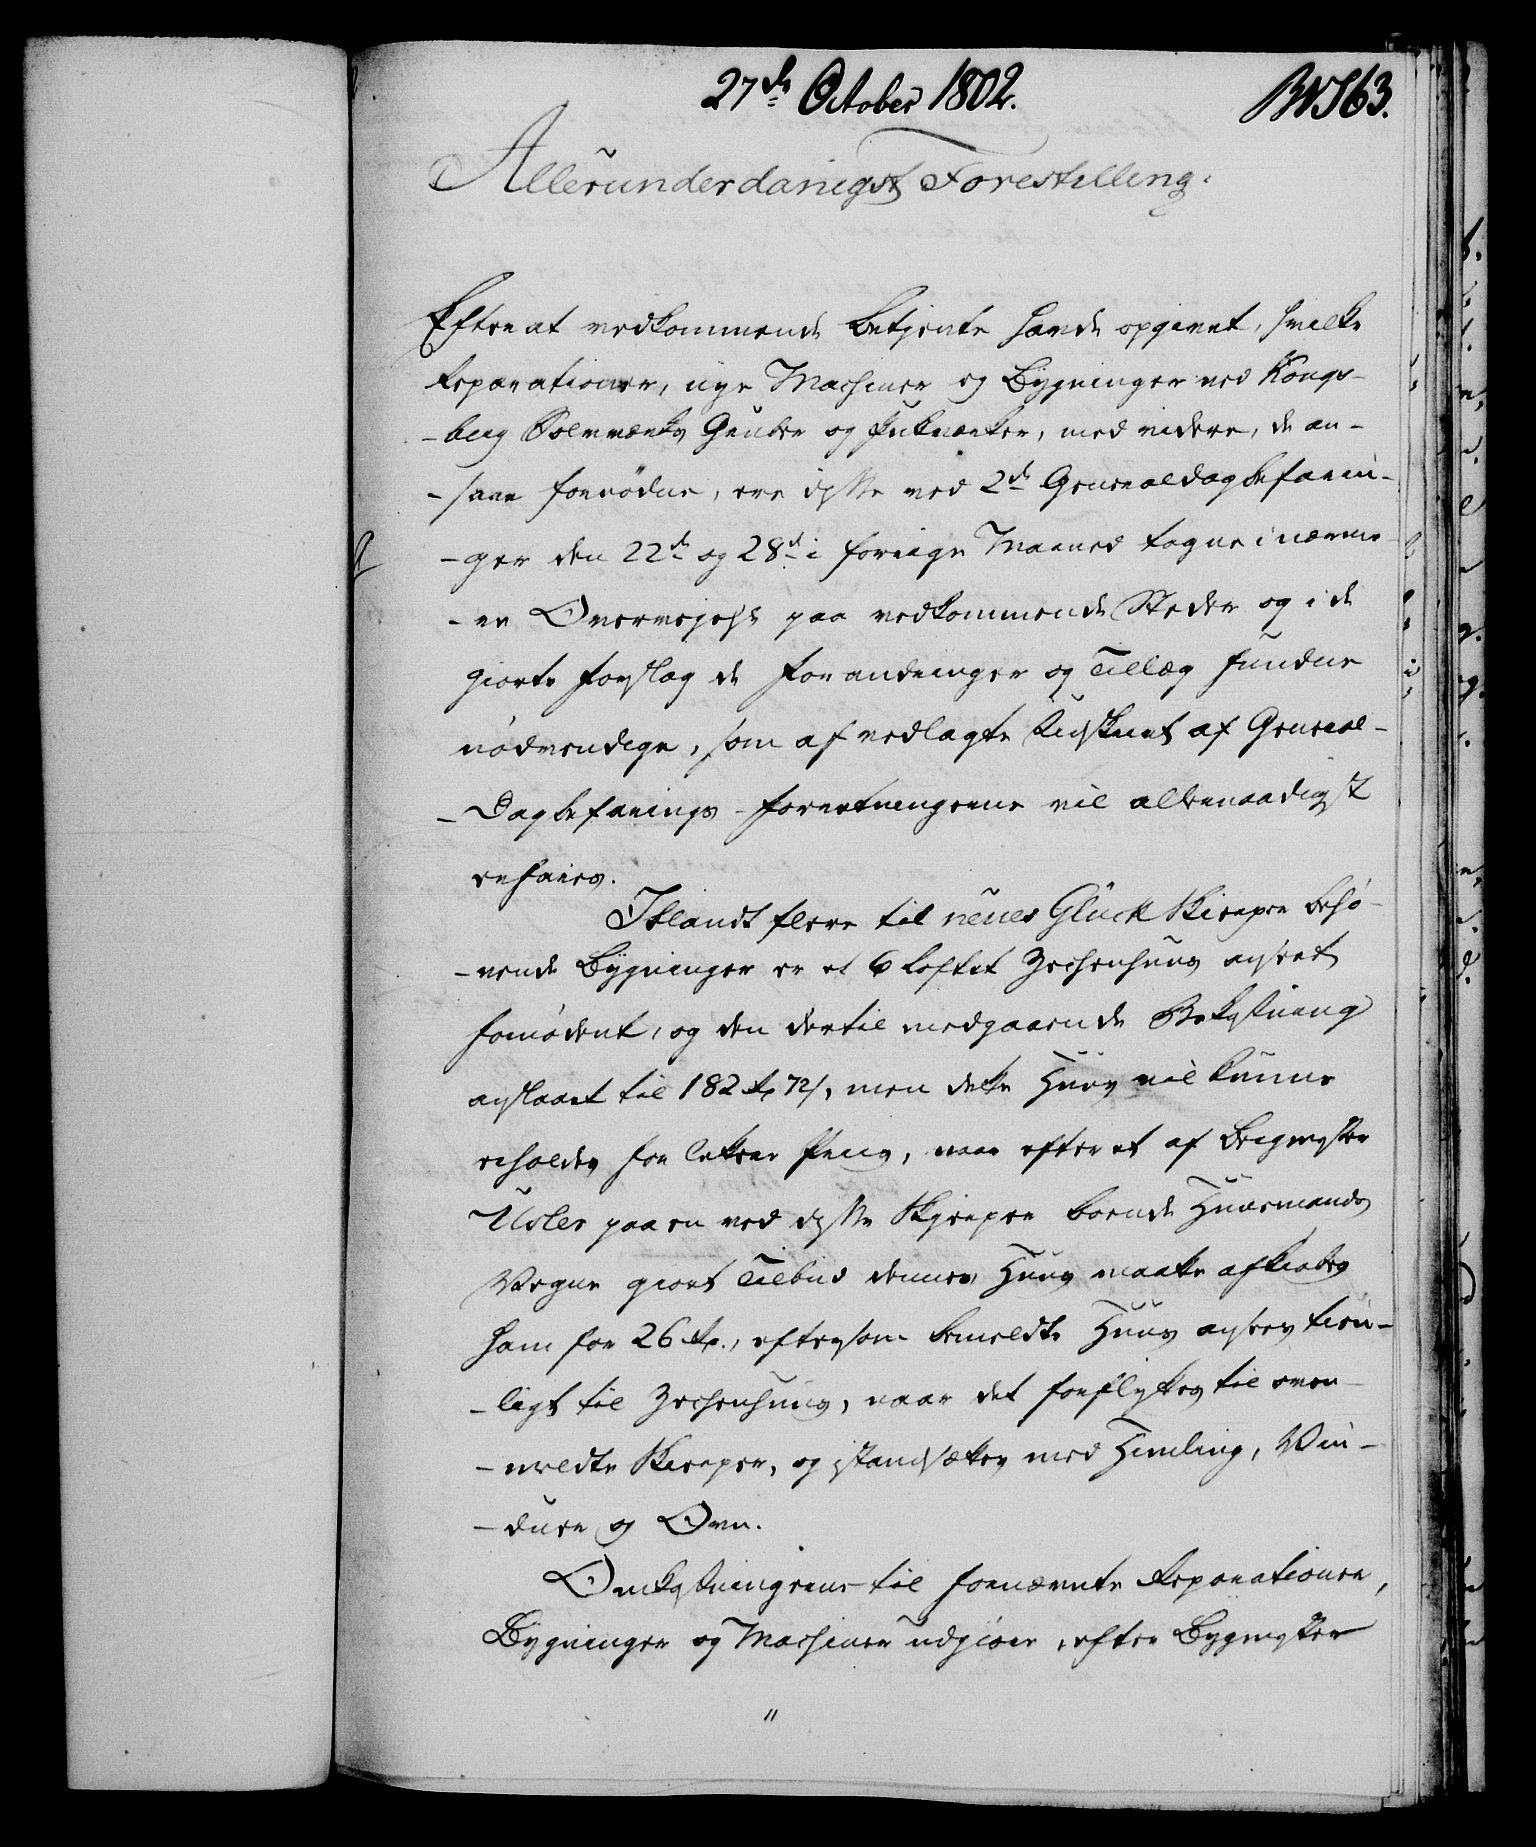 27de October 1802.
No 163.
Allerunderdanigst Forestilling.
Efter at vedkommende Betjente havde opgivet, hvilke
Reparationer, nye Machiner og Bÿgninger ved Kongs-
-berg Sølvværks Gruber og Pukværker, med videre, de an-
-saae fornødne, ere disse ved 2de Generaldagbefarin-
-ger den 22de og 28de i forrige Maaned tagne i nærme-
-re Overvejelse paa vedkommende Steder og i de
giorte Forslag de Forandringer og Tillæg fundne
nødvendige, som af vedlagte Udskrivt af General-
-Dagbefarings-Forretningerne vil allernaadigst
erfares.
Iblandt flere til neues Glück Skierper behø-
-vende Bÿgninger er et 6 Loftet Zechenhuus anseet
fornødent, og den dertil medgaaende Bekostning
anslaaet til 182 Rd 72 s, men dette Huus vil kunne
erholdes for lettere Priis, naar efter et af Bergmester
Usler paa en ved disse Skjerper boende Huusmands
Vegne giort Tilbud dennes Huus maatte afkiøbes
ham for 26 Rd., eftersom bemeldte Huus ansees tien-
-ligt til Zechenhuus, naar det forflyttes til oven-
-meldte Skierper, og istandsættes med Himling, Vin-
-duer og Ovn.
Omkostningerne til fornævnte Reparationer,
Bÿgninger og Machiner udgiøre, efter Bÿgmester
"